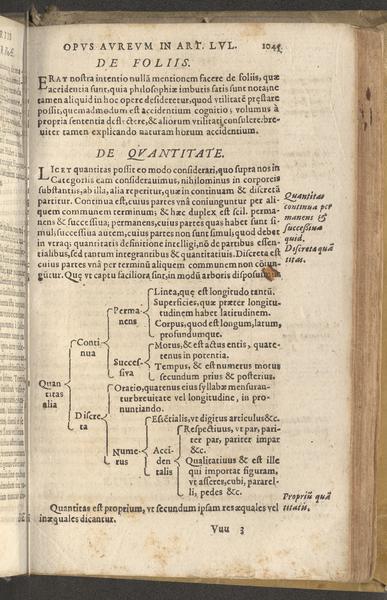 OPVS AVREVM IN ART. LVL. 1045
DE FOLIIS.
ERAT nostra intentio nullã mentionem facere de foliis, quæ
accidentia sunt, quia philosophiæ imbutis satis sunt nota; ne
tamen aliquid in hoc opere desideretur, quod vtilitatẽ præstare
possit, quemadmodum est accidentium cognitio; volumus à
propria sententia desistere, & aliorum vtilitati consulere: bre-
uiter tamen explicando naturam horum accidentium.
DE QVANTITATE.
LICET quantitas possit eo modo considerari, quo supra nos in
Categoriis eam considerauimus, nihilominus in corporeis
substantiis, ab illa, alia reperitur, quæ in continuam & discretã
partitur. Continua est, cuius partes vnà coniunguntur per ali-
quem communem terminum; & hæc duplex est scil. perma-
nens & successiua; permanens, cuius partes quas habet sunt si-
mul; successiua autem, cuius partes non sunt simul; quod debet
in vtraq; quantitatis definitione intelligi, nõ de partibus essen-
tialibus, sed tantum integrantibus & quantitatiuis. Discreta est
cuius partes vnà per terminũ aliquem communem non cõiun-
gũtur. Quę vt captu faciliora sint, in modũ arboris disposuimus.
Quantitas
continua per
manens &
successiua
quid.
Discreta quã
titas.
Quan
titas
alia
Conti-
nua
Perma-
nens
Linea, quę est longitudo tantũ.
Superficies, quæ præter longitu-
tudinem habet latitudinem.
Corpus, quod est longum, latum,
profundumque.
Succes-
siua
Motus, & est actus entis, quate-
tenus in potentia.
Tempus, & est numerus motus
secundum prius & posterius.
Discre
ta
Oratio, quatenus eius syllabæ mensuran-
tur breuitate vel longitudine, in pro-
nuntiando.
Nume-
rus
Essẽtialis, vt digitus articulus &c.
Acci-
den
talis
Respectiuus, vt par, pari-
ter par, pariter impar
&c.
Qualitatiuus & est ille
qui importat figuram,
vt asseres, cubi, pararel-
li, pedes &c.
Quantitas est proprium, vt secundum ipsam res æquales vel
inæquales dicantur.
Propriũ quã
titatis.
Vuu 3